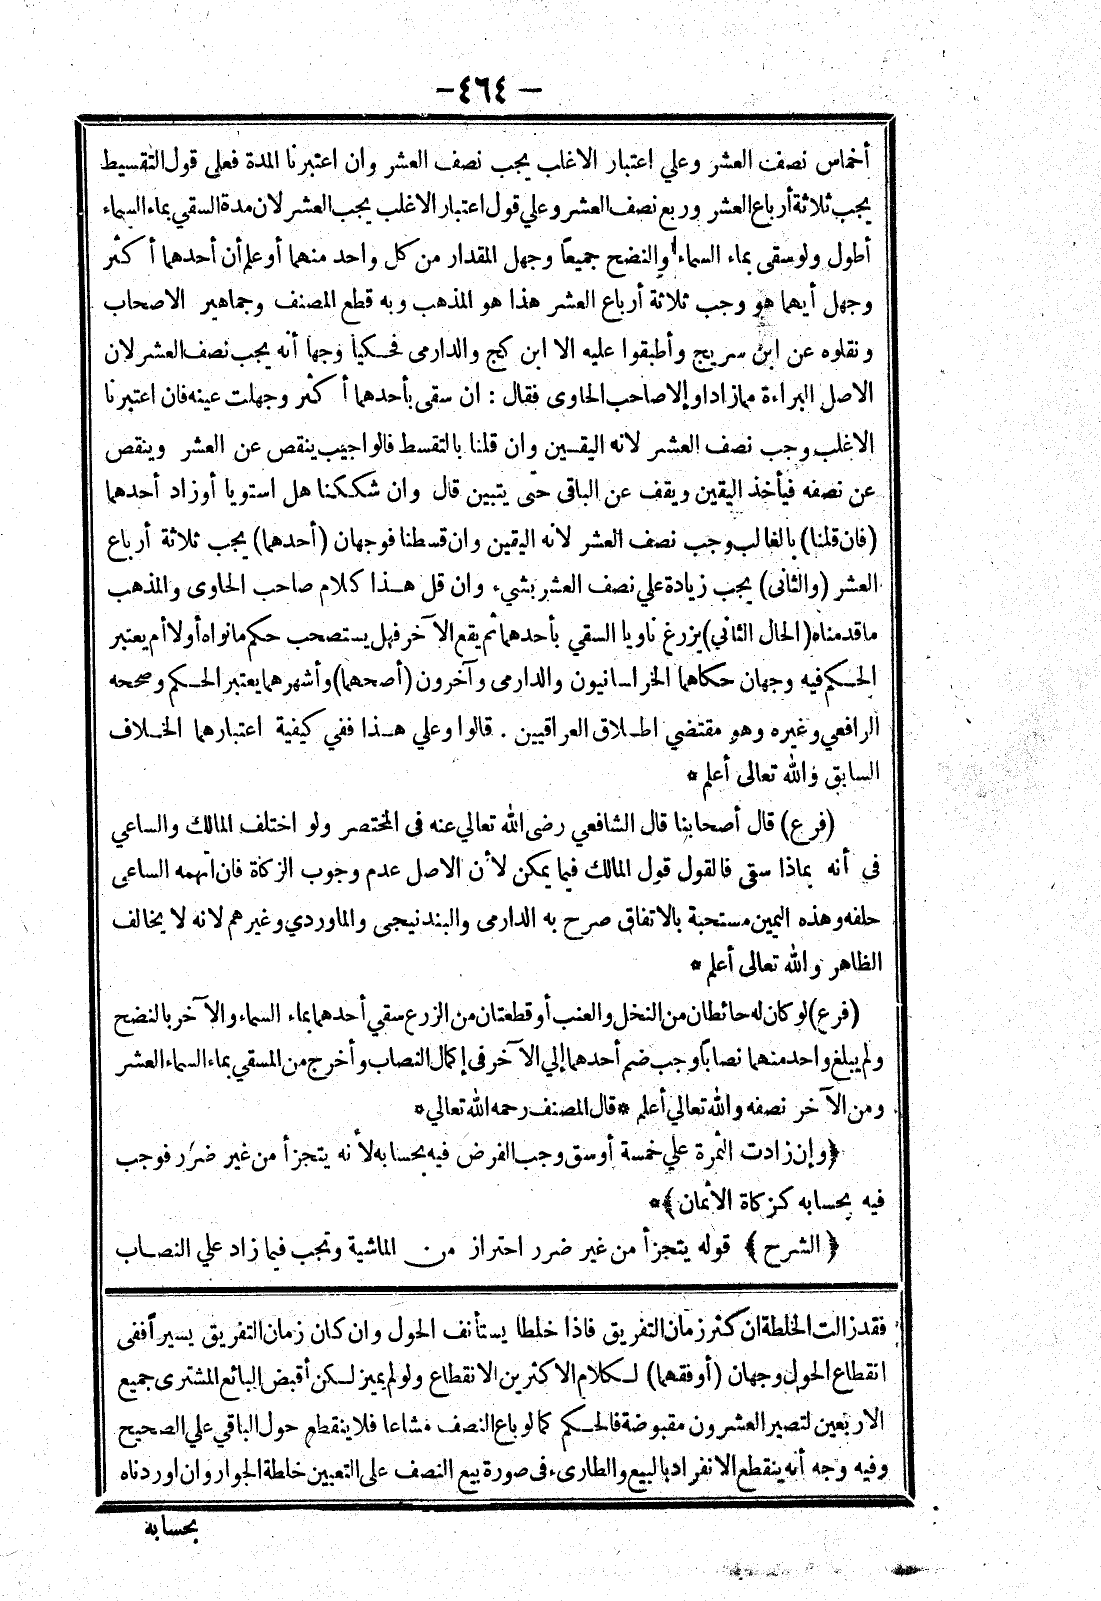 - ٤٦٤ -
أخماس نصف العشر وعلي اعتبار الاغلب يجب نصف العشر وان اعتبرنا المدة فعلى قول التقسيط
يجب ثلاثة أرباع العشر وربع نصف العشر وعلي قول اعتبار الاغلب يجب العشر لان مدة السقي بماء السماء
أطول ولو سقى بماء السماء والنضح جميعاً وجهل المقدار من كل واحد منهما أو علم أن أحدهما أكثر
وجهل أيهما هو وجب ثلاثة أرباع العشر هذا هو المذهب وبه قطع المصنف وجماهير الاصحاب
ونقلوه عن ابن سريج وأطبقوا عليه الا ابن كج والدارمى فحكيا وجها أنه يجب نصف العشر لان
الاصل البراءة مما زاد او إلا صاحب الحاوى فقال : ان سقى بأحدهما أكثر وجهلت عينه فان اعتبرنا
الاغلب وجب نصف العشر لانه اليقين وان قلنا بالتقسط فالواجب ينقص عن العشر وينقص
عن نصفه فيأخذ اليقين ويقف عن الباقى حتى يتبين قال وان شككنا هل استويا أوزاد أحدهما
(فان قلنا) بالغالب وجب نصف العشر لانه اليقين وان قسطنا فوجهان (أحدهما) يجب ثلاثة أرباع
العشر (والثانى) يجب زيادة علي نصف العشر بشيء وان قل هذا كلام صاحب الحاوى والمذهب
ما قدمناه (الحال الثاني) يزرع ناويا السقي بأحدهما ثم يقع الآخر فهل يستصحب حكم مانواه أولا أم يعتبر
الحكم فيه وجهان حكاهما الخراسانيون والدارمى وآخرون (أصحهما) وأشهرهما يعتبر الحكم وصححه
الرافعي وغيره وهو مقتضي اطلاق العراقيين . قالوا وعلي هذا ففي كيفية اعتبارهما الخلاف
السابق والله تعالى أعلم *
(فرع) قال أصحابنا قال الشافعي رضى الله تعالي عنه فى المختصر ولو اختلف المالك والساعي
فى أنه بماذا سقى فالقول قول المالك فيما يمكن لأن الاصل عدم وجوب الزكاة فان اتهمه الساعى
حلفه وهذه اليمين مستحبة بالاتفاق صرح به الدارمى والبندنيجى والماوردي وغيرهم لانه لا يخالف
الظاهر والله تعالى أعلم *
(فرع) لو كان له حائطان من النخل والعنب أو قطعتان من الزرع سقي أحدهما بماء السماء والآخر بالنضح
ولم يبلغ واحد منهما نصاباً وجب ضم أحدهما إلي الآخر فى إكمال النصاب وأخرج من المسقي بماء السماء العشر
ومن الآخر نصفه والله تعالي أعلم * قال المصنف رحمه الله تعالي *
﴿وإن زادت الثمرة علي خمسة أوسق وجب الفرض فيه بحسابه لأنه يتجزأ من غير ضرر فوجب
فيه بحسابه كزكاة الأثمان﴾ *
﴿ الشرح ﴾ قوله يتجزأ من غير ضرر احتراز من الماشية وتجب فيما زاد علي النصاب
فقد زالت الخلطة ان كثر زمان التفريق فاذا خلطا يستأنف الحول وان كان زمان التفريق يسيراً ففى
انقطاع الحول وجهان (أوفقهما) لكلام الاكثرين الانقطاع ولو لم يميز لكن أقبض البائع المشترى جميع
الاربعين لتصير العشرون مقبوضة فالحكم كما لو باع النصف مشاعا فلا ينقطع حول الباقي علي الصحيح
وفيه وجه أنه ينقطع الانفراد بالبيع والطارىء فى صورة بيع النصف على التعيين خلطة الجوار وان اوردناه
بحسابه